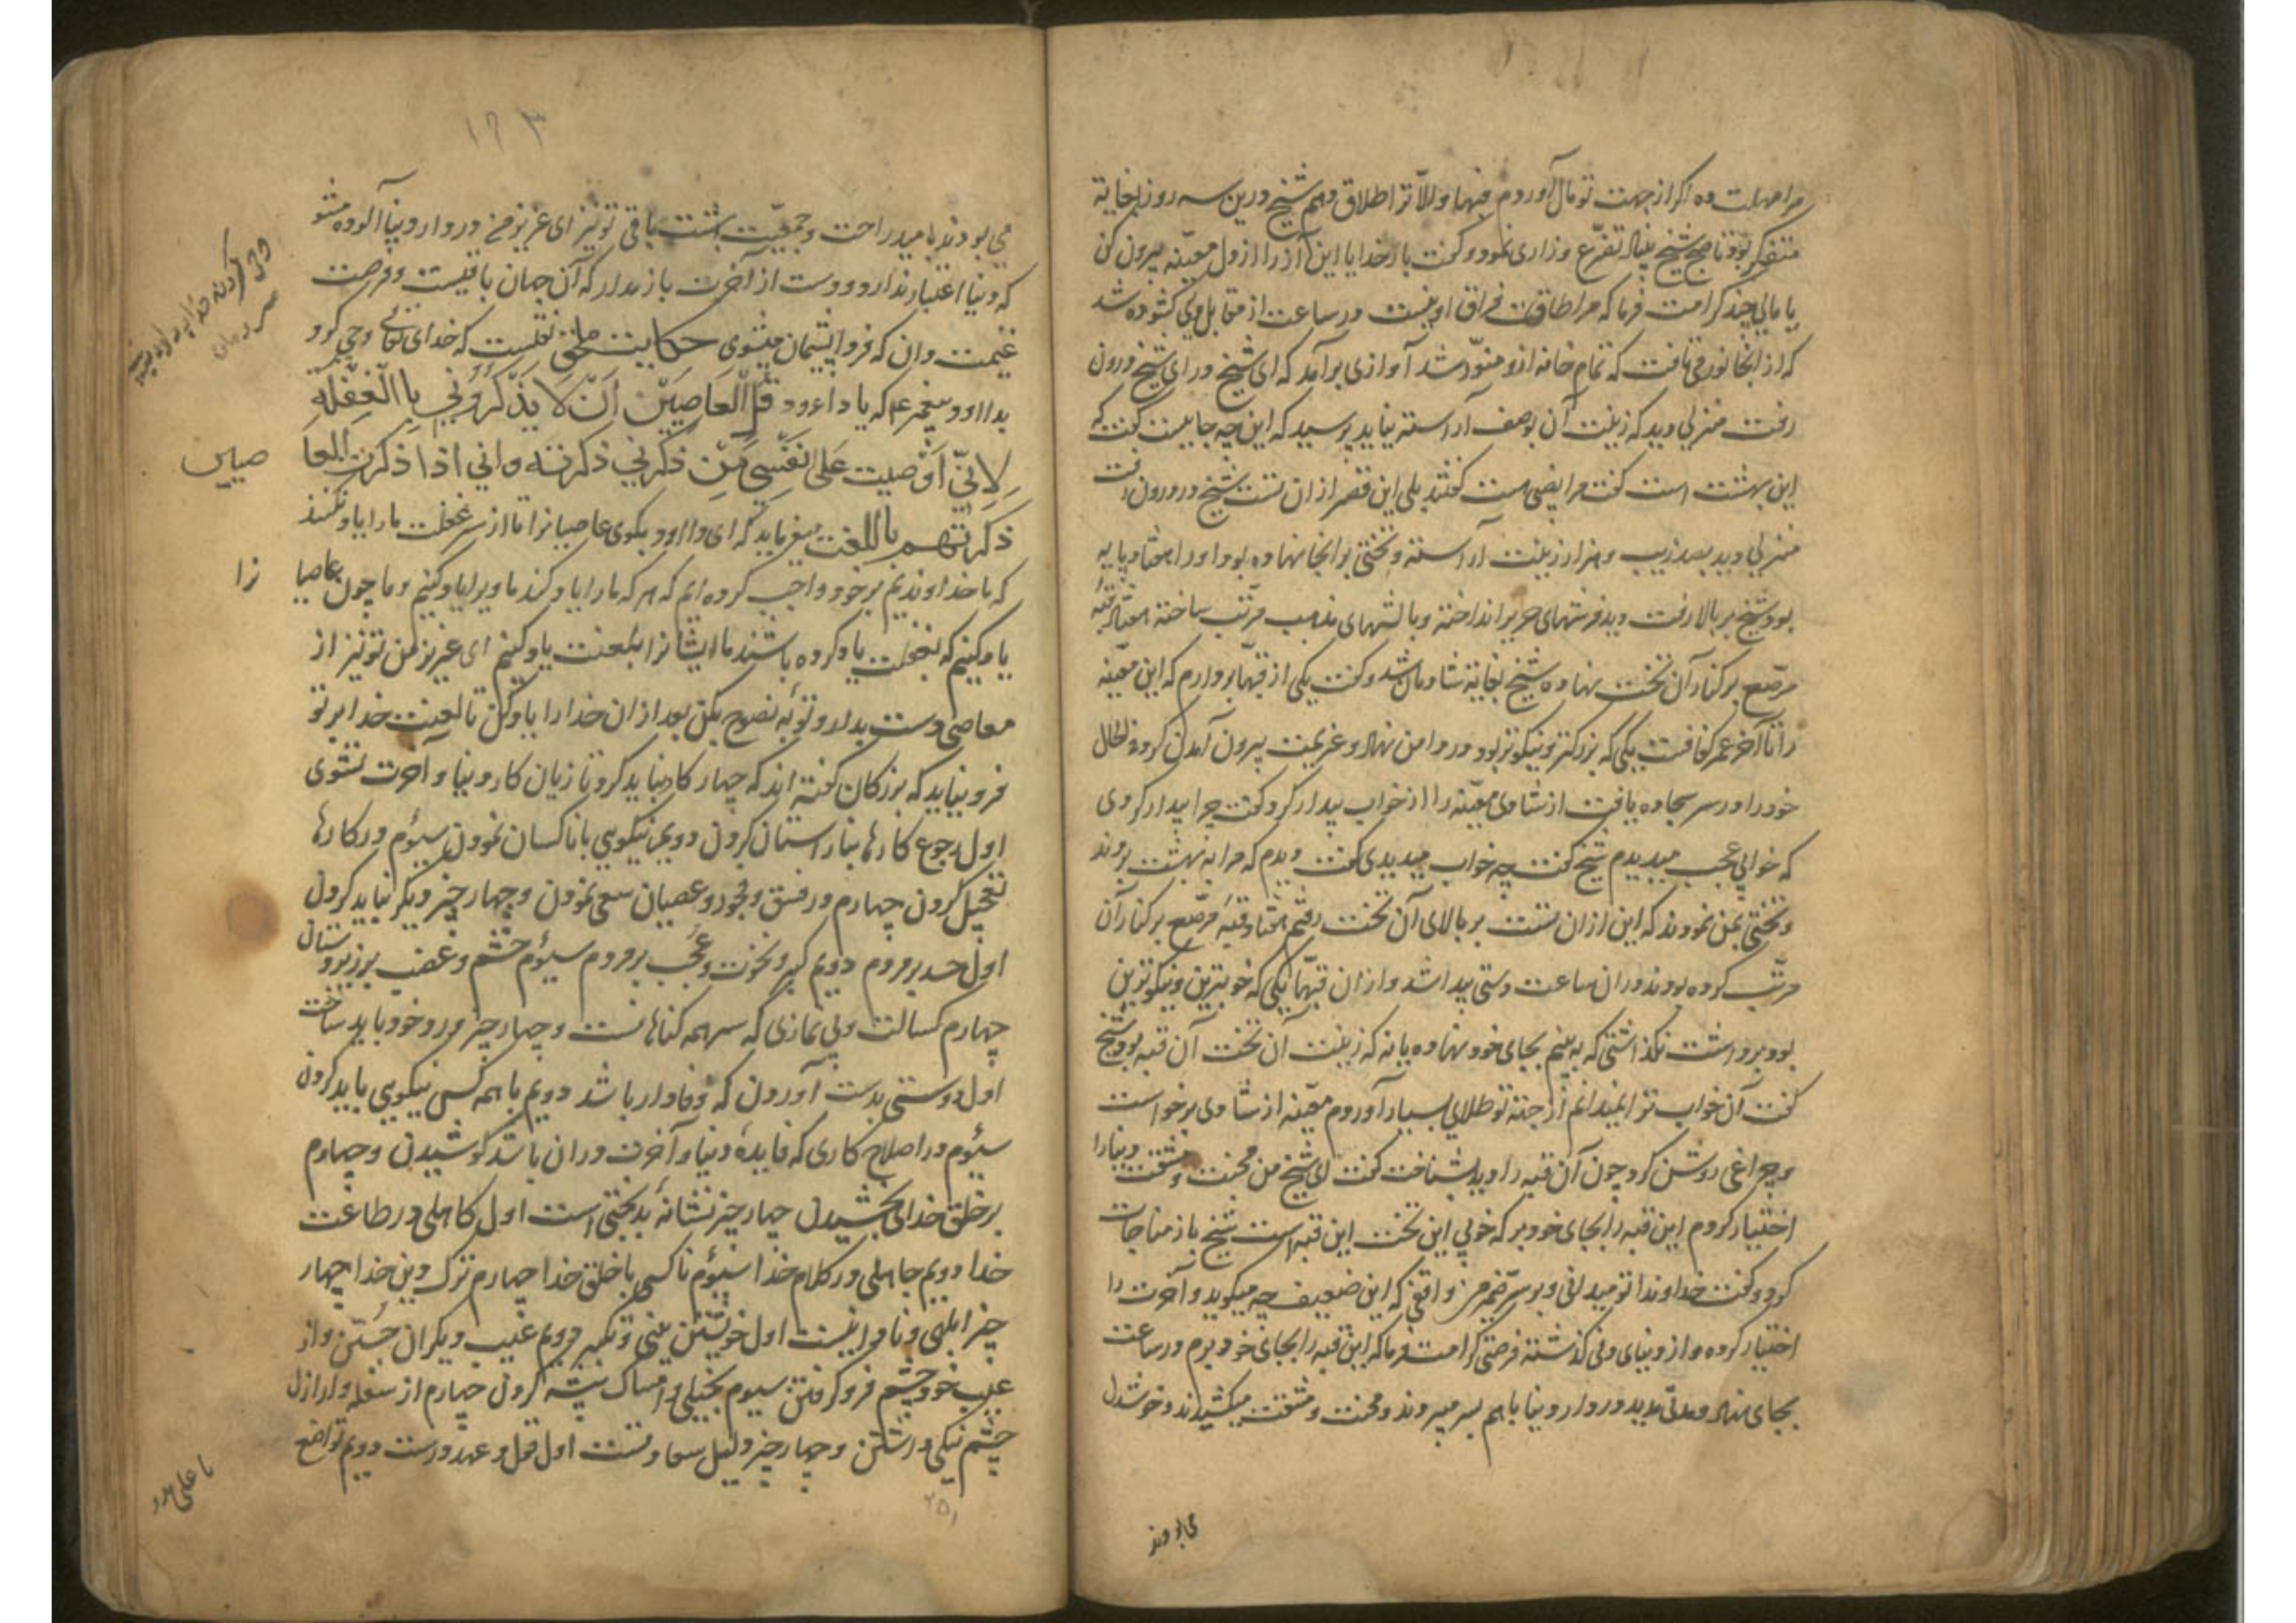 مرا مهلت ده اکر از جهت تو مال آوردم فبها والّا ترا طلاق دهم شیخ درین سه روز بغایة
متفکر بود تا صبح شیخ بنیاد تضرّع و زاری نمود و کفت بار خدایا این آز را از دل معیّنه بیرون کن
یا مالی چند کرامت فرما که مرا طاقت فراق او نیست در ساعت از مقابل وی کشوده شد
که از انجا نور می تافت که تمام خانه ازو منوّر شد آوازی برآمد که ای شیخ در ای شیخ درون
رفت منزلی دید که زینت آن بوصف آراسته نیاید پرسید که این چه جاییست کفت که
این بهشت است کفت مرا نصیبی هست کفتند بلی این قصر از ان تست شیخ در درون رفت
منزلی دید بصد زیب و هزار زینت آراسته و تختی بر انجا نهاده بود او را هفتاد پایه
بود شیخ بر بالا رفت دید فرشهای حریر انداخته و بالشهای مذهب مرتّب ساخته هفتاد قبّه
مرصّع بر کنار آن تخت نهاده شیخ بغایة شادمان شد و کفت یکی از قبّها بردارم که این معیّنه
را تا آخر عمر کفافت یکی که بزرکتر و نیکوتر بود در دامن نهاد و عزیمت بیرون آمدن کرد فی الحال
خود را در سر سجاده یافت از شادی معیّنه را از خواب بیدار کرد کفت چرا بیدار کردی
که خوابی عجب میدیدم شیخ کفت چه خواب میدیدی کفت دیدم که مرا به بهشت بردند
و تختی بمن نمودند که این از ان تست بر بالای آن تخت رفتم هفتاد قبّه مرصّع بر کنار آن
مرتّب کرده بودند در ان ساعت دستی پیدا شد و از ان قبّها یکی که خوبترین و نیکوترین
بود برداشت نکذاشتی که به بینم بجای خود نهاده یا نه که زینت آن تخت آن قبه بود شیخ
کفت آن خواب ترا نمیدانم از جهة تو طلای بسیار آوردم معیّنه از شادی برخواست
و چراغی روشن کرد چون آن قبه را دید بشناخت کفت ای شیخ من محنت و مشقت دنیا را
اختیار کردم این قبه را بجای خود بر که خوبی این تخت این قبه است شیخ باز مناجات
کرد و کفت خداوندا تو میدانی و بر سرّ ضمیر من واقفی که این ضعیفه چه میکوید و آخرت را
اختیار کرده و از دنیای دنی کذشته فرصتی کرامت فرما که این قبه را بجای خود برم در ساعت
بجای نهاد و مدتی مدید در دار دنیا با هم بسر میبردند و محنت و مشقت میکشیدند و خوشدل
می بودند
١٦٣
می بودند بامید راحت و جمعیّت بهشت باقی تو نیز ای عزیز من در دار دنیا آلوده مشو
که دنیا اعتبار ندارد و دست از آخرت باز مدار که آن جهان باقیست و فرصت
غنیمت دان که فردا پشیمان میشوی حکایت نقلست که خدای تعالی وحی کرد
بداوود پیغمبر ع م که یا داءود قُل العَاصِیَنَ اَنّ لَا یَذّکُرُونی بِاالغَفلَه
لِاَنّی اَوصیت عَلی نَفسی مَن ذکرنی ذکرته وانی اذا ذکرت العا
صیین
ذکرتهم باللغت میفرماید که ای داوود بکوی عاصیانرا تا از سر غفلت ما را یاد نکنند
که ما خداوندیم بر خود واجب کرده ایم که هر که ما را یاد کند ما ویرا یاد کنیم و ما چون عاصیا
نرا
یاد کنیم که بغفلت یاد کرده باشند ما ایشانرا بلعنت یاد کنیم ای عزیز من تو نیز از
معاصی دست بدار و توبه نصوح بکن بعد از ان خدا را یاد کن تا لعنت خدا بر تو
فرو نیاید که بزرکان کفته اند که چهار کار نباید کرد تا زیان کار دنیا و آخرت نشوی
اول رجوع کارها بناراستان کردن دویم نیکویی با ناکسان نمودن سیوم در کارها
تعجیل کردن چهارم در فسق و فجور و عصیان سعی نمودن و چهار چیز دیکر نباید کردن
اول حسد بر مردم دویم کبر و نخوت و عجب بر مردم سیوم خشم و غضب بر زیردستان
چهارم کسالت و بی نمازی که سرهمه کناهانست و چهار چیز ورد خود باید ساخت
اول دوستی بدست آوردن که وفادار باشد دویم با همه کس نیکویی باید کردن
سیوم در اصلاح کاری که فایدهٔ دنیا و آخرت در ان باشد کوشیدن و چهارم
بر خلق خدای بخشیدن چهار چیز نشانهٔ بدبختی است اول کاهلی در طاعت
خدا دویم جاهلی در کلام خدا سیوم ناکسی با خلق خدا چهارم ترک دین خدا چهار
چیز ابلهی و نادانیست اول خویشتن بینی و تکبر دویم عیب دیکران جُستن و از
عیب خود چشم فرو کرفتن سیوم بخیلی و امساک پیشه کردن چهارم از سفله و اراذل
چشم نیکی داشتن و چهار چیز دلیل سعادتست اول قول و عهد درست دویم تواضع
یا علی مدد
٢٥١